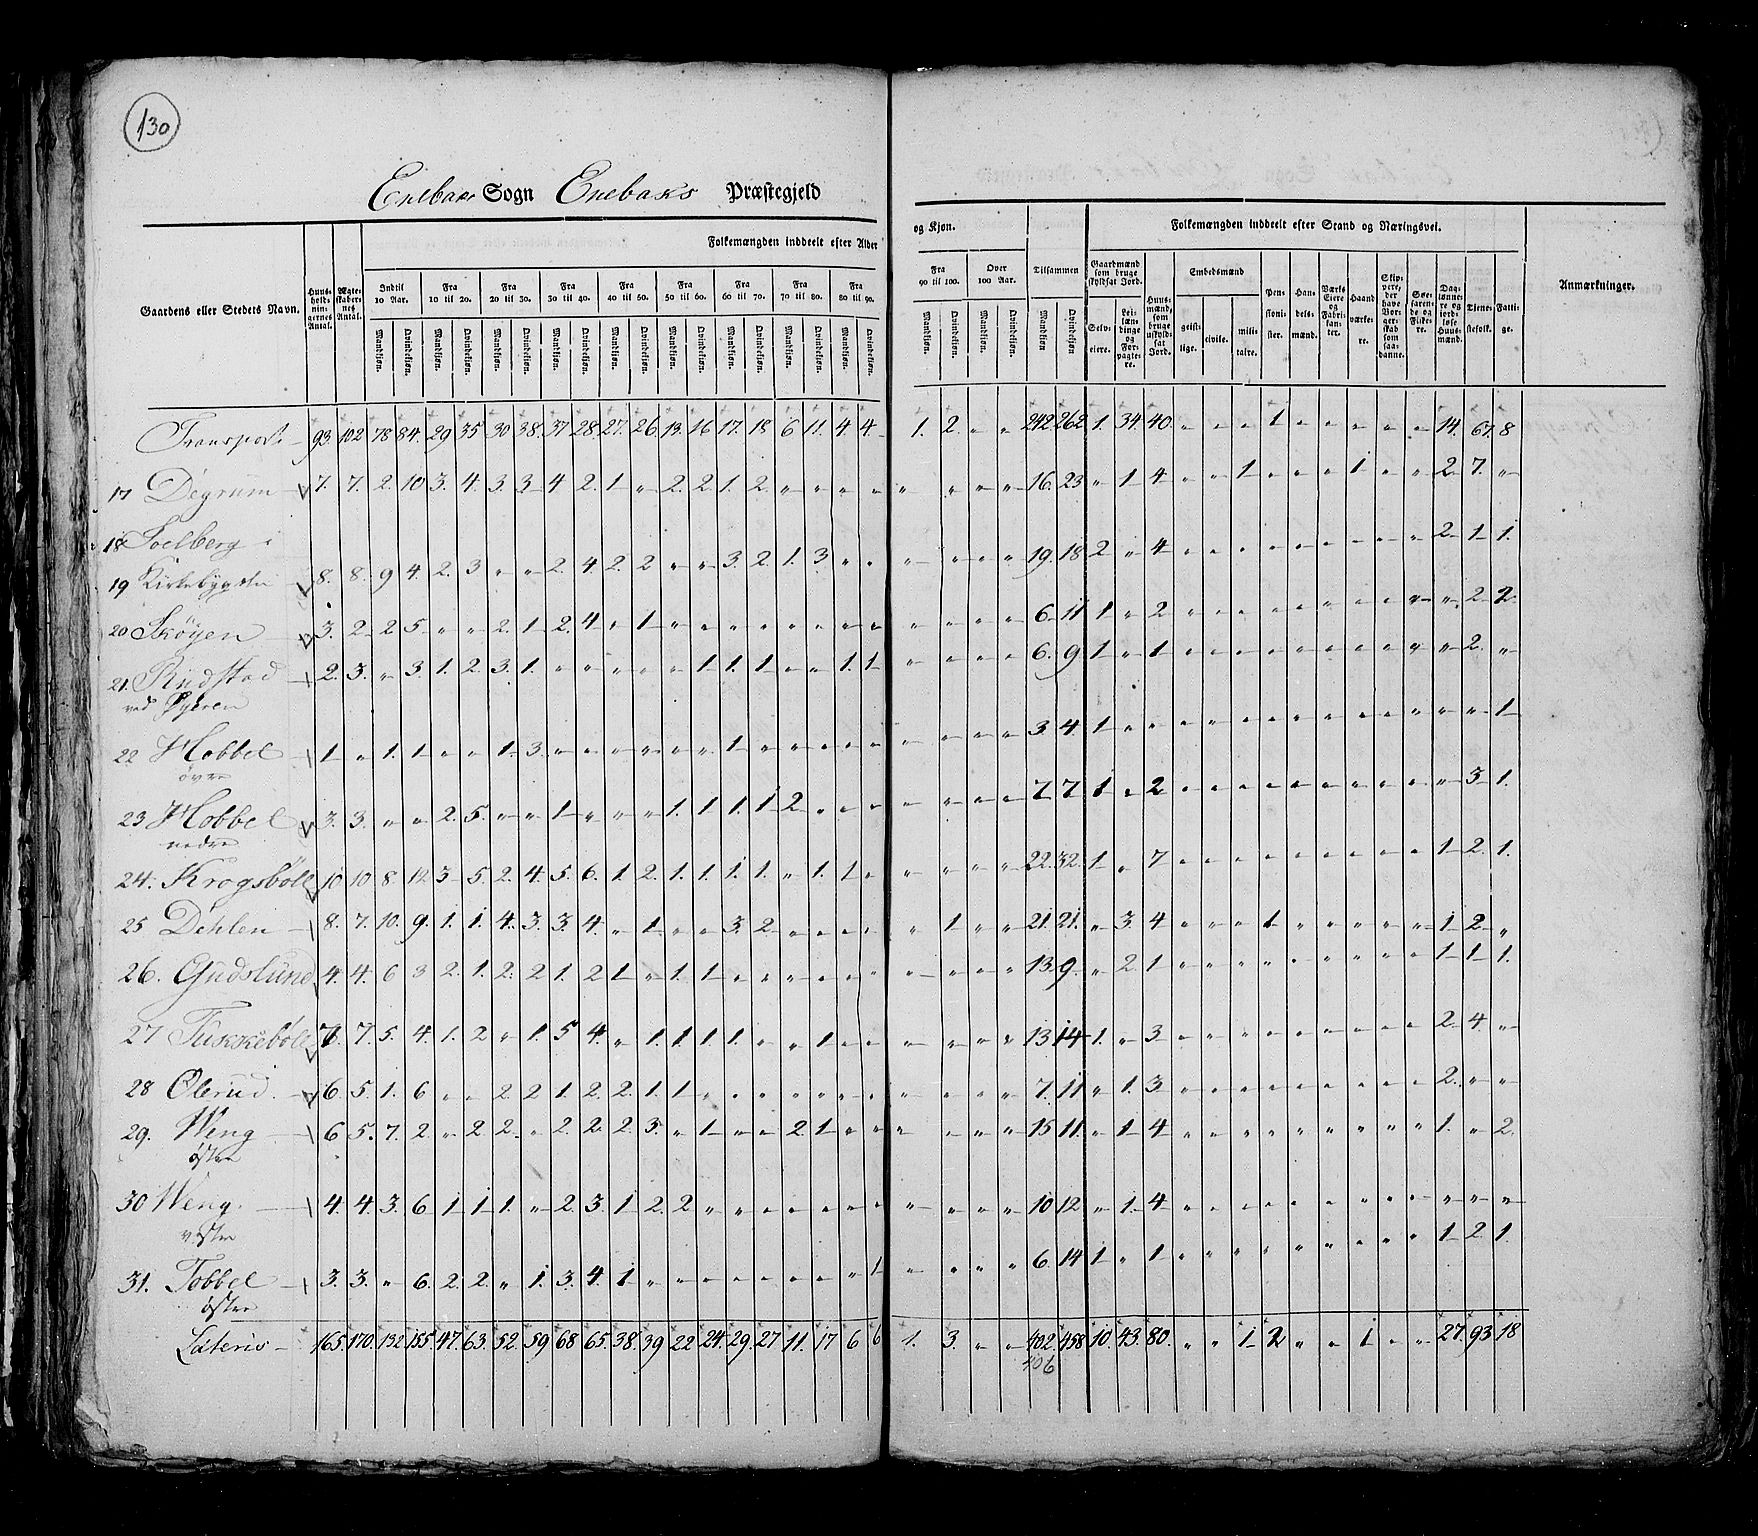 130
Enebak Sogn Enebaks Præstegjeld
Gaardens eller Stedets Navn.
Huusholdningernes Antal.
Ægteskabernes Antal.
Folkemængden inddeelt efter Alder og Kjøn.
Indtil 10 Aar. Fra 10 til 20. Fra 20 til 30. Fra 30 til 40. Fra 40 til 50. Fra 50 til 60. Fra 60 til 70. Fra 70 til 80. Fra 80 til 90. Fra 90 til 100. Over 100 Aar. Tilsammen
Mandkjøn. Qvindekjøn.
Folkemængden inddeelt efter Stand og Næringsvei.
Gaardmænd som bruge skyldsat Jord.
Selveiere. Leilændinge og Forpagtere.
Huusmænd, som bruge uskyldsat Jord.
Embedsmænd
geistlige. civile. militaire.
Pensionister.
Handelsmænd.
Værks Eiere og Fabrikanter.
Haandværkere.
Skippere, der have Borgerskab som saadanne.
Søefarende og Fiskere.
Daglønnere og jordløse Huusmænd.
Tjenestefolk.
Fattige.
Anmærkninger.
Transport 93. 102 78 84. 29 35 30 38. 37 28. 27. 26. 13. 16 17. 18 6 11. 4. 4. 1. 2. " " 242 262 1. 34. 40. " " " 1 " " " " " 14. 67. 8
17 Degrum 7. 7. 2. 10 3. 4. 3. 3 4 2. 1 " 2. 2. 1. 2. " " " " " " " " 16. 23 " 1 4 " " 1 " " " 1 " " 2 7. "
18 Soelberg i
19 Kirkebygden 8. 8. 9 4. 2. 3 " " 2. 4. 2. 2 " " 3. 2. 1. 3 " " " " " " 19. 18 2 " 4 " " " " " " " " " 2 1 1.
20 Skøyen 3. 2. 2 5 " " 2. 1 2. 4 " 1 " " " " " " " " " " " " 6 11 1 " 2 " " " " " " " " " " 2 2
21. Rudstad 2. 3. " 3. 1. 2. 3. 1. " " " " " 1 1. 1 " " 1. 1 " " " " 6. 9 1 " 1 " " " " " " " " " " 2. "
ved Øyeren
22 Hobbel 1 " 1. 1 " " 1. 3. " " " " " " 1 " " " " " " " " " 3. 4 1 " " " " " " " " " " " " " 1
øvre
23 Hobbel 3. 3. " " 2. 5. " " 1 " " " 1. 1 1. 1 2 " " " " " " " 7 7 1 " 2 " " " " " " " " " " 3 1.
nedre
24. Krogsböll 10 10 8. 12 3 5. 2. 4. 5. 6. 1. 2. 1. 1. 1. 1. " 1. 1 " " " " " 22. 32. 1 " 7 " " " " " " " " " 1 2. 1.
25 Dehlen 8. 7. 10. 9. 1. 1. 4. 3. 3. 4. " 1. " " 3. 2. " " " " " 1 " " 21. 21. " 3. 4 " " " 1 " " " " " 1 2 "
26. Gudslund 4. 4. 6 3 2. 1. 2. 2 1. 2 1 " 1. 1 " " " " " " " " " " 13. 9 " 2. 1 " " " " " " " " " 1 1 1.
27 7. 5. 4. 1. 2 " 1. 5 4. " 1. 1 1 1. " " 1 " " " " " " 13 14 1. " 3 " " " " " " " " " 2 4 "
28 Olerud. 6. 5. 1. 6 " " 2. 2 1. 2. 2. 1. 1 " " " " " " " " " " " 7. 11 " 1. 3 " " " " " " " " " 2. " "
29. Weng 6 5. 7. 2 " 2 2. " 2. 2. 2. 3. " 1 " " 2 1 " " " " " " 15 11. " 1 4 " " " " " " " " " 1. " 2.
østre
30 Weng. 4. 4. 3. 6 1 1 1. " 2. 3. 1 2. 2 " " " " " " " " " " " 10 12 " 1. 4 " " " " " " " " " " " "
vestre
31. Tobbel 3. 3. " 6. 2. 2. " 1. 3. 4. 1 " " " " " " " " 1 " " " " 6. 14 1 " 1 " " " " " " " " " 1 2 1.
østre
Lateris 165. 170. 132 155. 47. 63. 52. 59 68 65. 38. 39 22 24. 29. 27 11. 17 6 6 1. 3. " " 402. 458 10 43. 80. " " 1 2 " " 1 " " 27. 93. 18
406